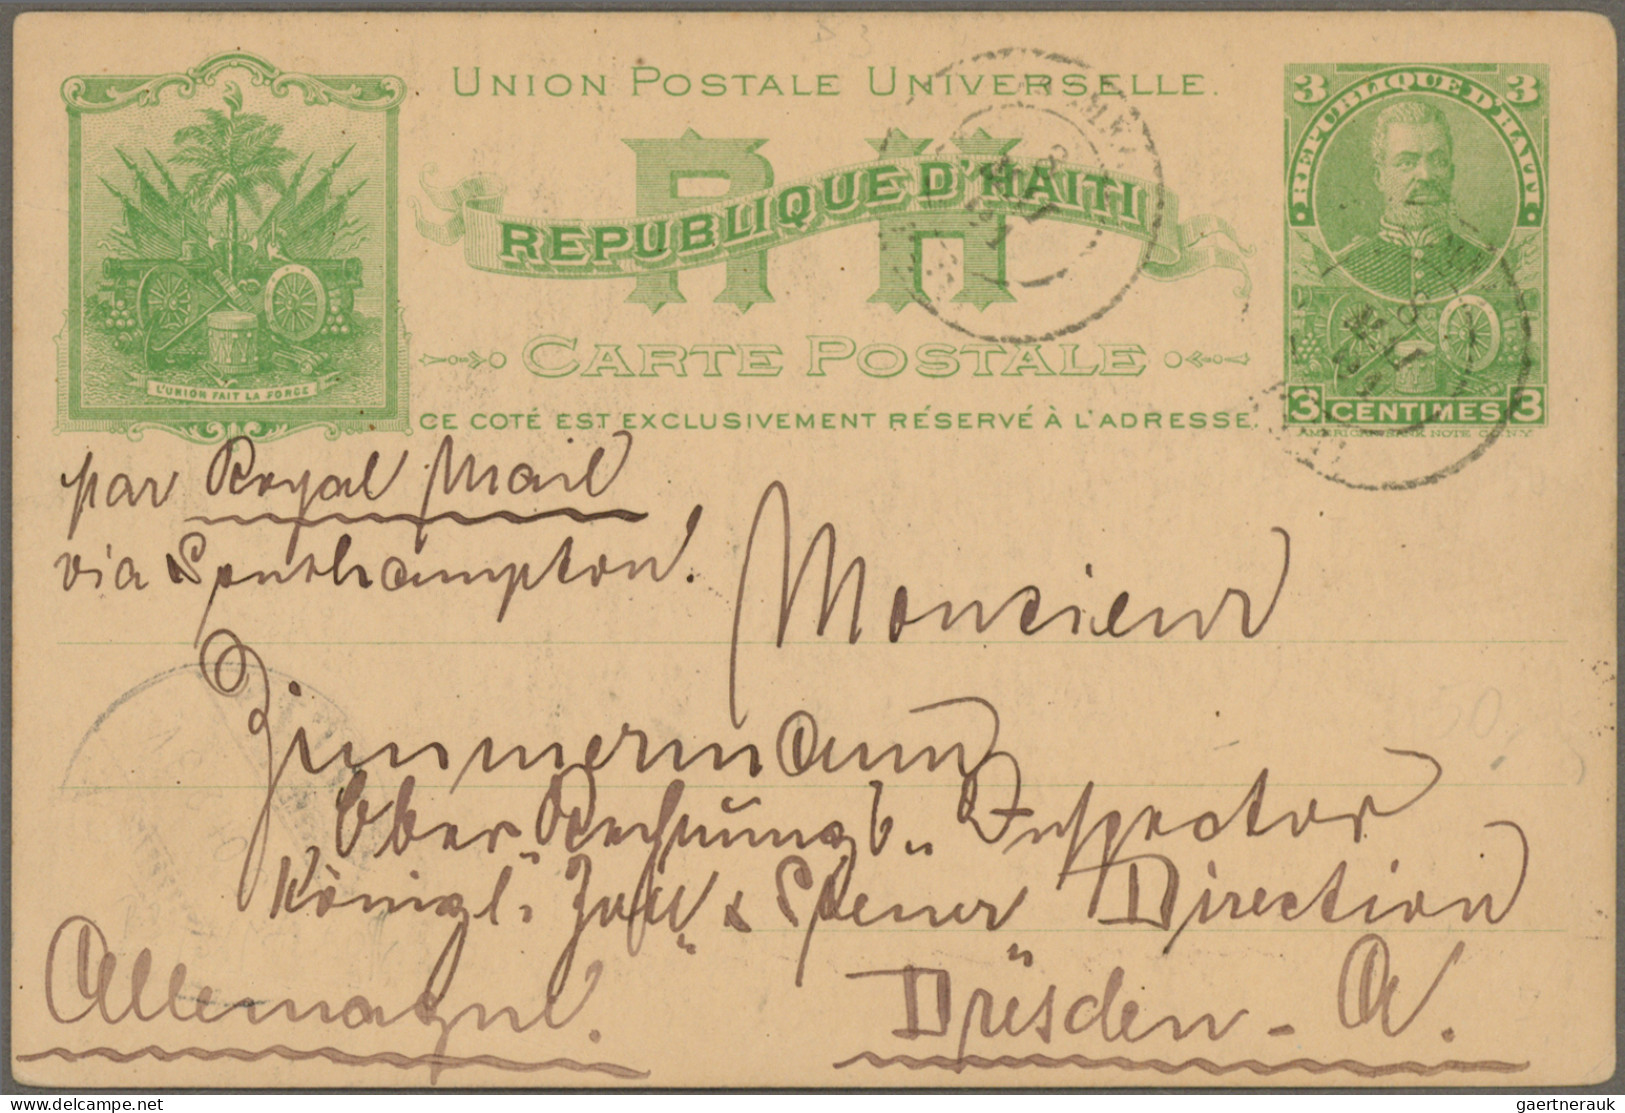 UNION POSTALE UNIVERSELLE.
RH
REPUBLIQUE D'HAITI
CARTE POSTALE
CE COTÉ EST EXCLUSIVEMENT RÉSERVÉ À L'ADRESSE.
L'UNION FAIT LA FORCE
3 3
REPUBLIQUE D'HAITI
3 CENTIMES 3
AMERICAN BANK NOTE CO. N.Y.
par Royal Mail
via Southampton.
Monsieur
Zimmermann
Ober Rechnungs Inspector
Königl. Zoll & Steuer Direction
Dresden - A.
Allemagne.
gaertnerauk